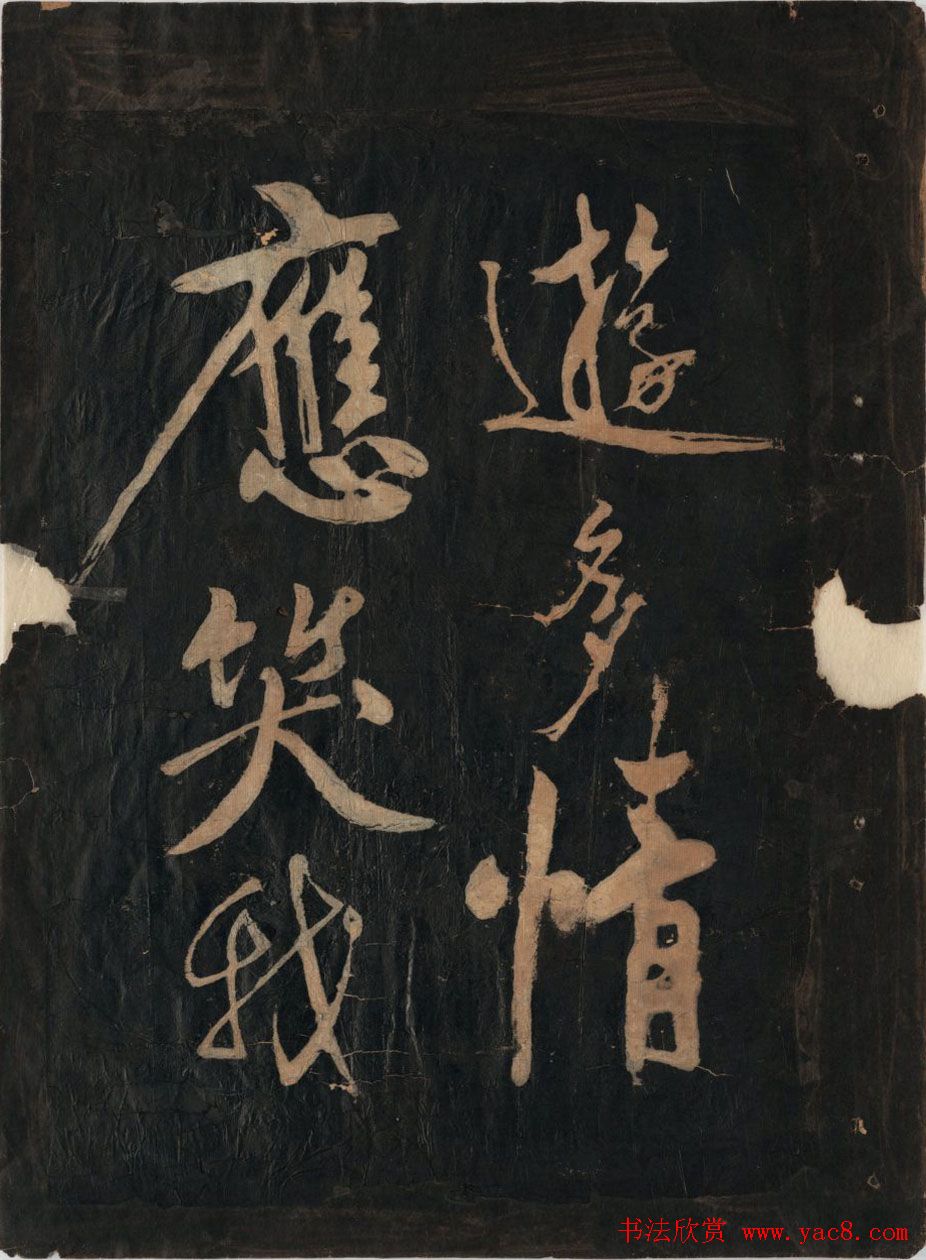 遊多情
應笑我
书法欣赏 www.yac8.com